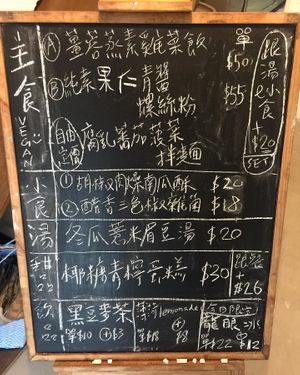 主食 VEGAN
Ⓐ 薑蓉蒸素雞菜飯 單 $50
Ⓑ 純素果仁青醬
螺絲粉 $55
自由定價 腐乳蕃茄菠菜
拌麵
跟湯+小食 $20/SET
小食
① 胡椒肉燥南瓜酥 $20
② 醋香三色椒雞角 $18
湯 冬瓜薏米眉豆湯 $20
甜 椰糖青檸蛋糕 $30 跟餐 $26
飲 黑豆麥茶
單$10 +$3
lemonade
單$18 + $8
每日限定
龍眼冰
單$22 $12